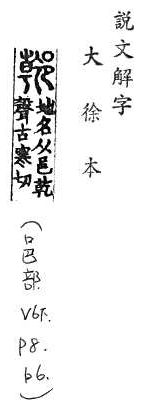 說文解字
大徐本
地名从邑乾
聲古寒切
（邑部. V6下. p8. b6.）